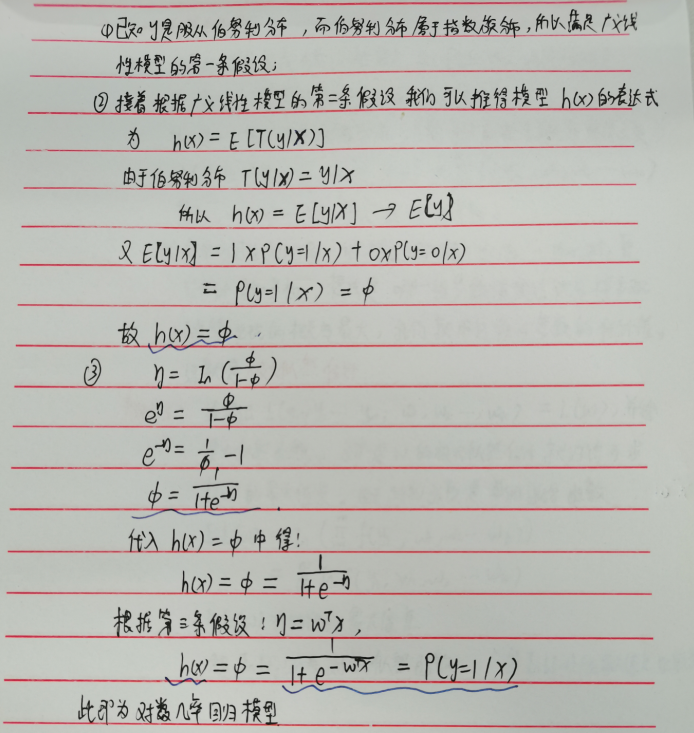 ①已知y是服从伯努利分布，而伯努利分布属于指数族分布，所以满足广义线
性模型的第一条假设；
②接着根据广义线性模型的第二条假设 我们可以推得模型 h(x)的表达式
为 h(x) = E[T(y|x)]
由于伯努利分布 T(y|x) = y|x
所以 h(x) = E[y|x] → E[y]
又 E[y|x] = 1×P(y=1|x) + 0×P(y=0|x)
= P(y=1|x) = φ
故 h(x) = φ.
③ η = ln(φ/(1-φ))
e^η = φ/(1-φ)
e^-η = 1/φ - 1
φ = 1/(1+e^-η).
代入 h(x) = φ 中得：
h(x) = φ = 1/(1+e^-η)
根据第三条假设：η = w^T x，
h(x) = φ = 1/(1+e^-w^T x) = P(y=1|x)
此即为对数几率回归模型